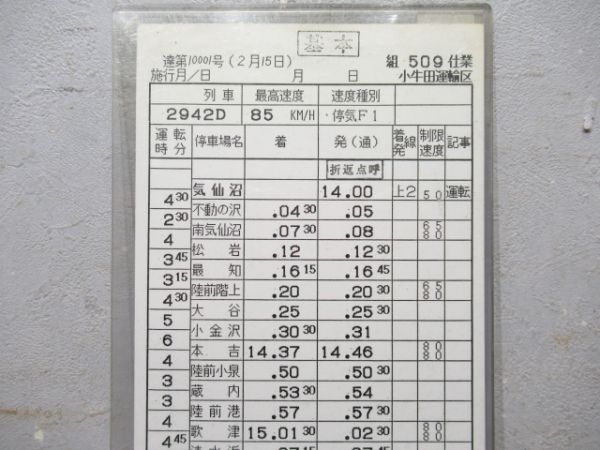 基本
達第10001号(2月15日) 組 509 仕業
施行月/日 月 日 小牛田運輸区
列車 最高速度 速度種別
2942D 85 KM/H 停気F1
運転時分 停車場名 着 発(通) 着線発 制限速度 記事
折返点呼
気仙沼 14.00 上2 50 運転
4 30
不動の沢 .04 30 .05
2 30
南気仙沼 .07 30 .08 65 80
4
松岩 .12 .12 30
3 45
最知 .16 15 .16 45
3 15
陸前階上 .20 .20 30 65 80
4 30
大谷 .25 .25 30
5
小金沢 .30 30 .31
6
本吉 14.37 14.46 80 80
4
陸前小泉 .50 .50 30
3
蔵内 .53 30 .54
3
陸前港 .57 .57 30
4
歌津 15.01 30 .02 30 80 80
4 45